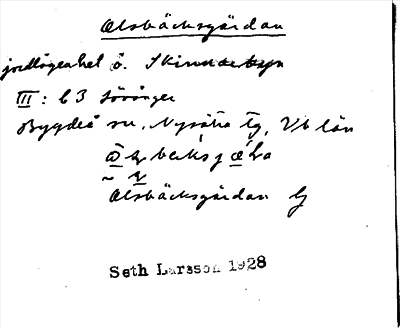 Alsbäcksgärdan
jordlägenhet å. Skinnarbyn
III: b 3 Lövånger
Bygdeå sn, Nysätra tg, Vb län
Alsbäcksgärdan
Seth Larsson 1928